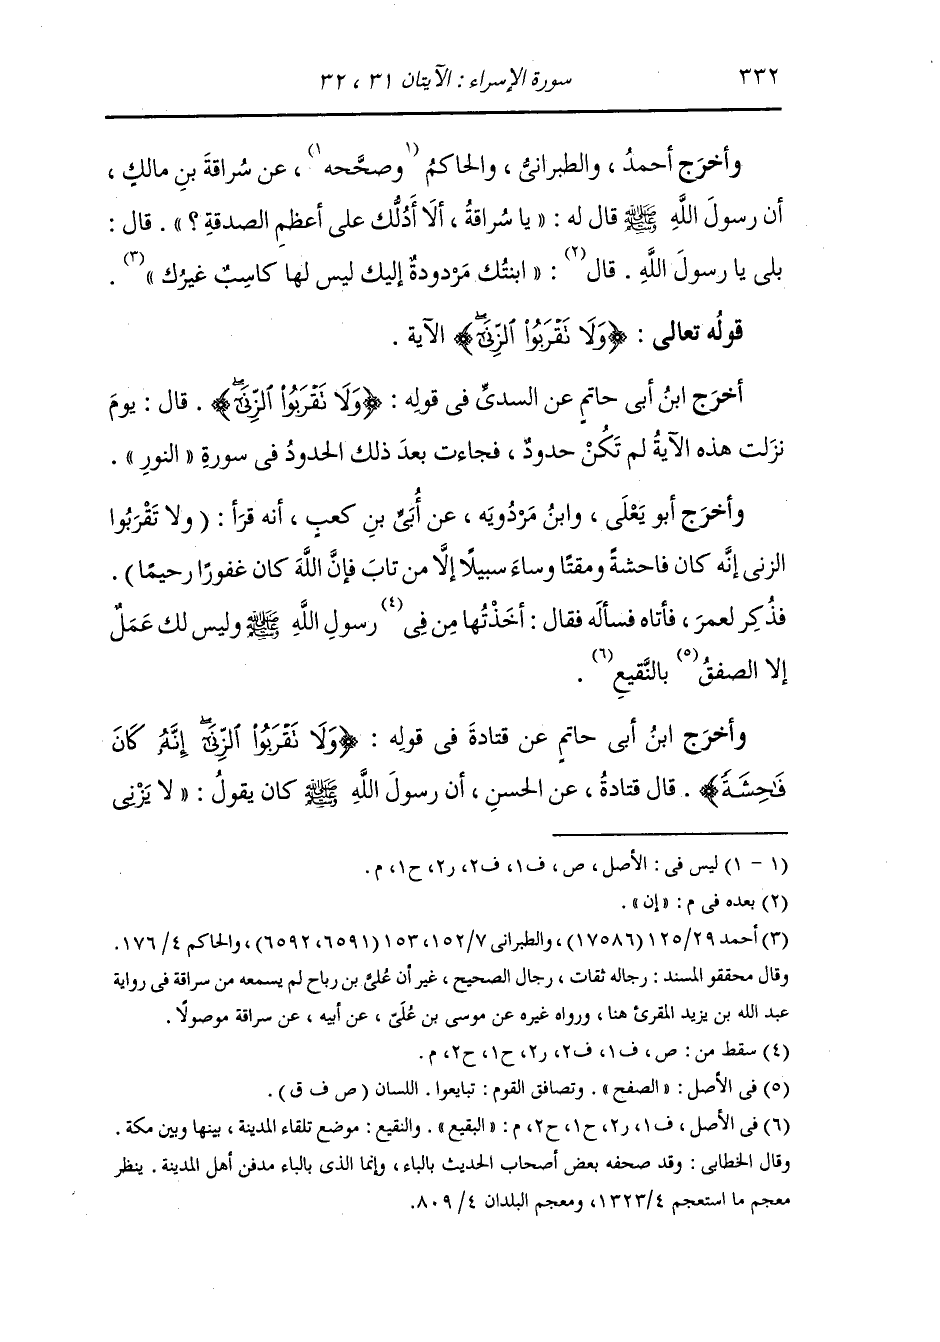 ٣٣٢ سورة الإسراء : الآيتان ٣١ ، ٣٢
وأخرَج أحمدُ ، والطبرانىُّ ، والحاكمُ (١وصحَّحه١) ، عن سُراقةَ بنِ مالكٍ ،
أن رسولَ اللَّهِ ﷺ قال له : « يا سُراقةُ ، ألَا أَدُلُّك على أعظمِ الصدقةِ ؟ » . قال :
بلى يا رسولَ اللَّهِ . قال(٢) : « ابنتُك مَرْدودةٌ إليك ليس لها كاسِبٌ غيرُك »(٣) .
قولُه تعالى : ﴿وَلَا نَقۡرَبُواْ ٱلزِّنَىٰٓۖ﴾ الآية .
أخرَج ابنُ أبى حاتمٍ عن السدىِّ فى قولِه : ﴿وَلَا نَقۡرَبُواْ ٱلزِّنَىٰٓۖ﴾ . قال : يومَ
نزَلت هذه الآيةُ لم تَكُنْ حدودٌ ، فجاءت بعدَ ذلك الحدودُ فى سورةِ « النورِ » .
وأخرَج أبو يَعْلَى ، وابنُ مَرْدويَه ، عن أُبَىِّ بنِ كعبٍ ، أنه قرَأ : ( ولا تَقْرَبُوا
الزنى إنَّه كان فاحشةً ومقتًا وساءَ سبيلًا إلَّا من تابَ فإنَّ اللَّهَ كان غفورًا رحيمًا ) .
فذُكِر لعمرَ ، فأتاه فسألَه فقال : أخَذْتُها مِن فِى(٤) رسولِ اللَّهِ ﷺ وليس لك عَمَلٌ
إلا الصفقُ(٥) بالنَّقيعِ(٦) .
وأخرَج ابنُ أبى حاتمٍ عن قتادةَ فى قولِه : ﴿وَلَا نَقۡرَبُواْ ٱلزِّنَىٰٓۖ إِنَّهُۥ كَانَ
فَٰحِشَةً﴾ . قال قتادةُ ، عن الحسنِ ، أن رسولَ اللَّهِ ﷺ كان يقولُ : « لا يَزْنى
(١ - ١) ليس فى : الأصل ، ص ، ف١، ف٢، ر٢، ح١، م.
(٢) بعده فى م : « إن » .
(٣) أحمد ١٢٥/٢٩ (١٧٥٨٦) ، والطبرانى ١٥٢/٧، ١٥٣ (٦٥٩١، ٦٥٩٢) ، والحاكم ٤/ ١٧٦.
وقال محققو المسند : رجاله ثقات ، رجال الصحيح ، غير أن عُلىَّ بن رباح لم يسمعه من سراقة فى رواية
عبد الله بن يزيد المقرئ هنا ، ورواه غيره عن موسى بن عُلَىّ ، عن أبيه ، عن سراقة موصولًا .
(٤) سقط من : ص، ف١، ف٢، ر٢، ح١، ح٢، م.
(٥) فى الأصل : « الصفح » . وتصافق القوم : تبايعوا . اللسان ( ص ف ق ) .
(٦) فى الأصل ، ف١، ر٢، ح١، ح٢، م : « البقيع » . والنقيع : موضع تلقاء المدينة ، بينها وبين مكة .
وقال الخطابى : وقد صحفه بعض أصحاب الحديث بالباء ، وإنما الذى بالباء مدفن أهل المدينة . ينظر
معجم ما استعجم ١٣٢٣/٤، ومعجم البلدان ٤/ ٨٠٩.